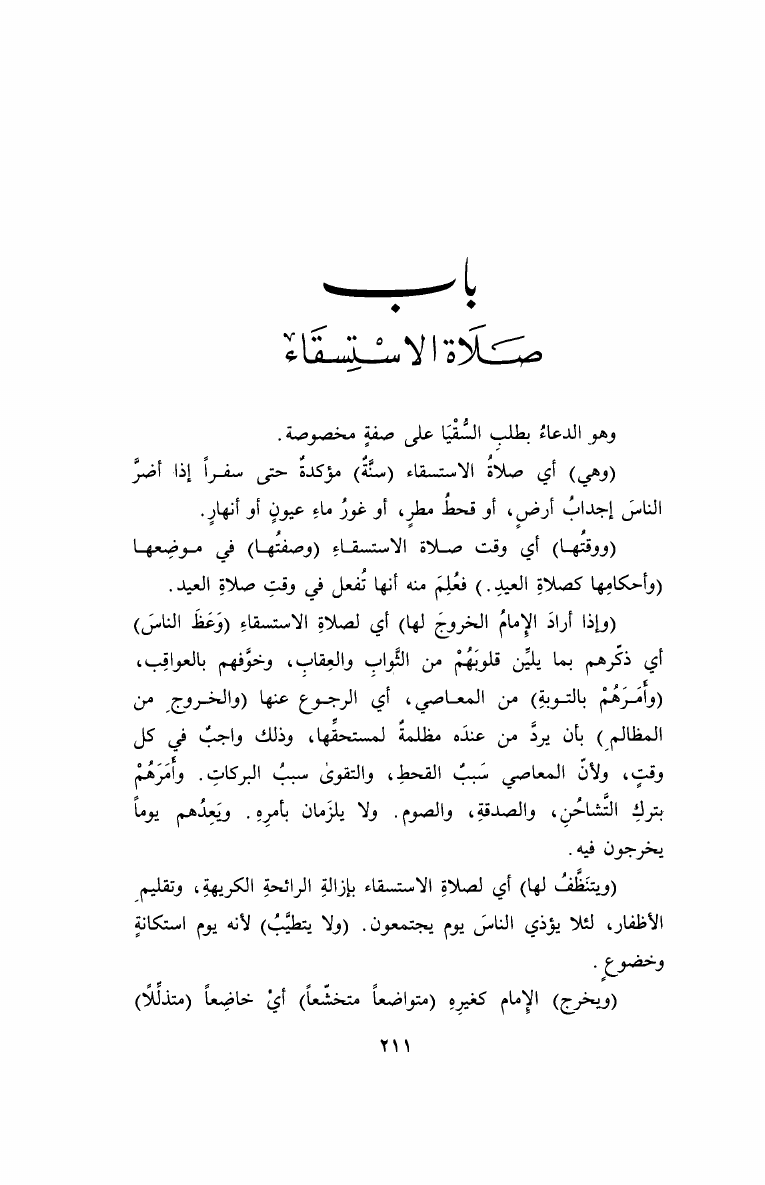 باب
صَلَاة الاسْتِسقَاء
وهو الدعاءُ بطلبِ السُّقْيَا على صفةٍ مخصوصة.
(وهي) أي صلاةُ الاستسقاء (سنَّةٌ) مؤكدةٌ حتى سفراً إذا أضرَّ
الناسَ إجدابُ أرضٍ، أو قحطُ مطرٍ، أو غورُ ماءِ عيونٍ أو أنهارٍ.
(ووقتُها) أي وقت صلاة الاستسقاءِ (وصفتُها) في موضِعها
(وأحكامِها كصلاةِ العيدِ.) فعُلِمَ منه أنها تُفعل في وقتِ صلاةِ العيد.
(وإذا أرادَ الإمامُ الخروجَ لها) أي لصلاةِ الاستسقاءِ (وَعَظَ الناسَ)
أي ذكّرهم بما يليِّن قلوبَهُمْ من الثَّوابِ والعِقابِ، وخوَّفهم بالعواقِب،
(وأَمَرَهُمْ بالتوبةِ) من المعاصي، أي الرجوع عنها (والخروجِ من
المظالمِ) بأن يردَّ من عندَه مظلمةٌ لمستحقِّها، وذلك واجبٌ في كل
وقتٍ، ولأنّ المعاصي سَببُ القحطِ، والتقوىٰ سببُ البركاتِ. وأَمَرَهُمْ
بتركِ التَّشاحُنِ، والصدقةِ، والصوم. ولا يلزَمان بأمرِهِ. ويَعِدُهم يوماً
يخرجون فيه.
(ويتنَظَّفُ لها) أي لصلاةِ الاستسقاء بإزالةِ الرائحةِ الكريهةِ، وتقليمِ
الأظفار، لئلا يؤذي الناسَ يوم يجتمعون. (ولا يتطيَّبُ) لأنه يوم استكانةٍ
وخضوعٍ.
(ويخرج) الإمام كغيرِهِ (متواضعاً متخشّعاً) أيْ خاضِعاً (متذلِّلًا)
٢١١